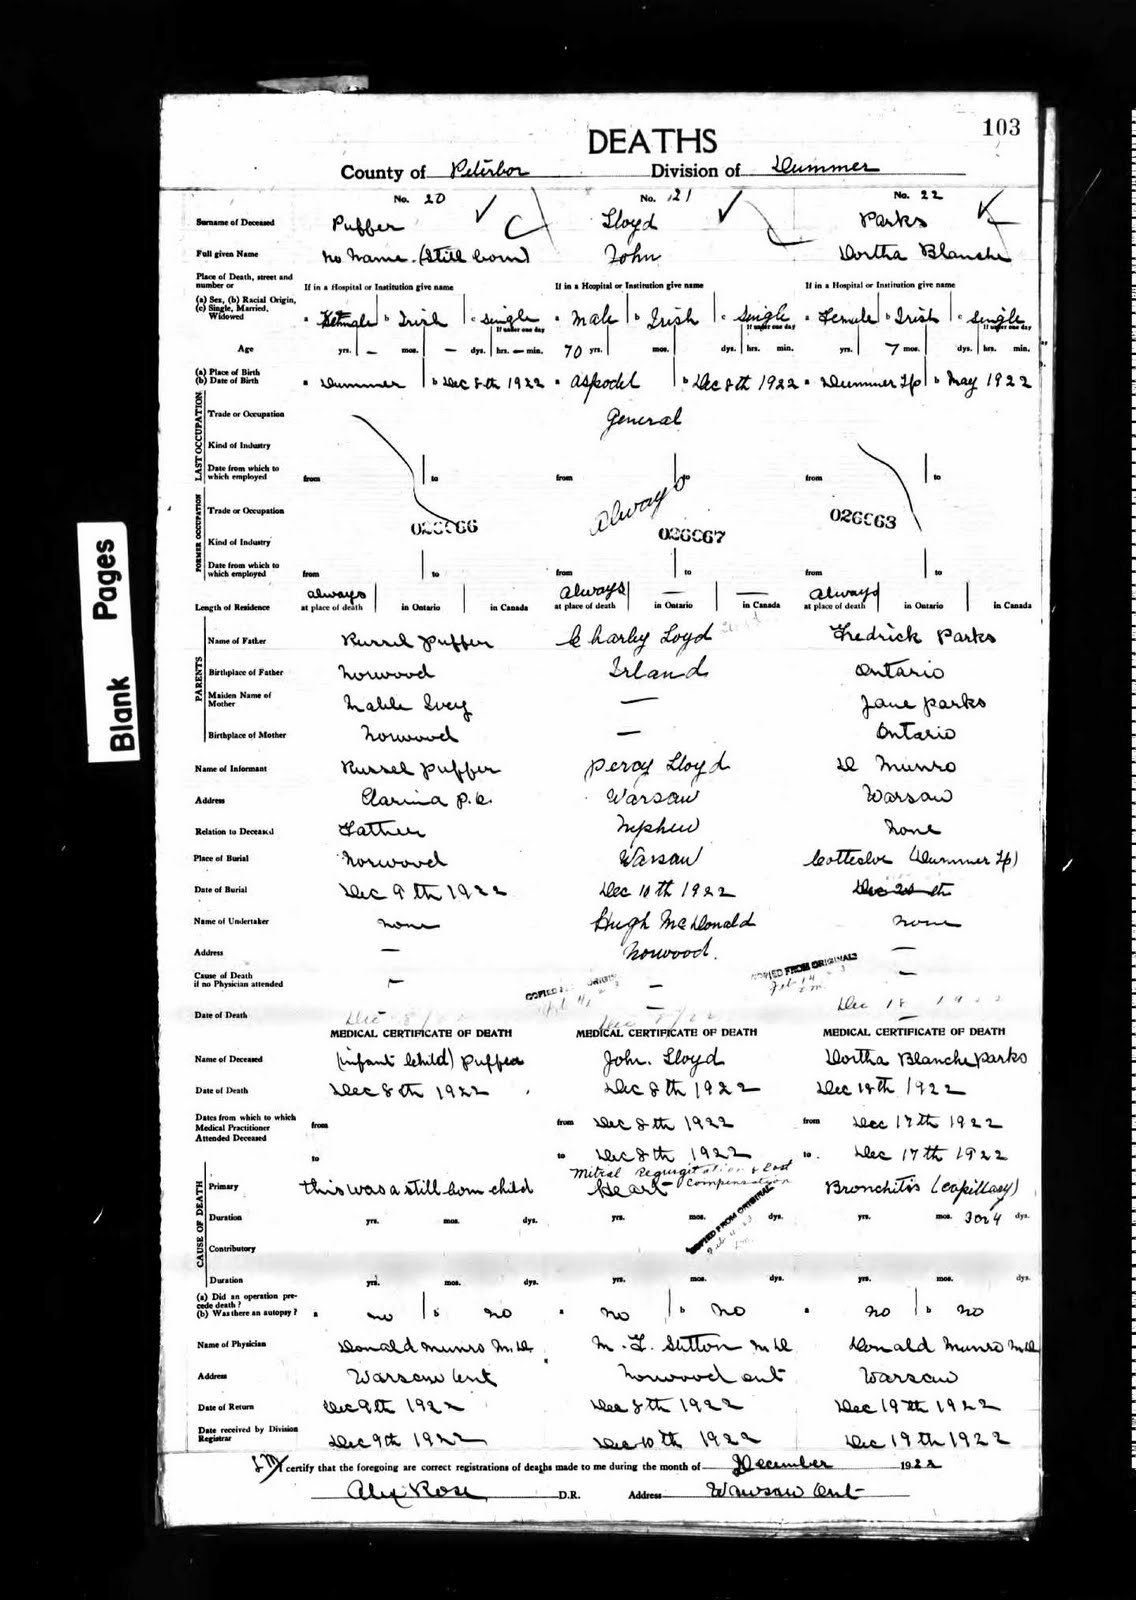 103
DEATHS
County of Peterboro Division of Dummer
No. 20 No. 21 No. 22
Surname of Deceased Puffer Lloyd Parks
Full given Name no name (Still born) John Dortha Blanche
Place of Death, street and number or If in a Hospital or Institution give name If in a Hospital or Institution give name If in a Hospital or Institution give name
(a) Sex, (b) Racial Origin, (c) Single, Married, Widowed a Female b Irish c Single a Male b Irish c Single a Female b Irish c Single
If under one day If under one day If under one day
Age yrs. — mos. — dys. hrs. — min. 70 yrs. mos. dys. hrs. min. yrs. 7 mos. dys. hrs. min.
(a) Place of Birth (b) Date of Birth a Dummer b Dec 8th 1922 a Aspodel b Dec 8th 1922 a Dummer Tp b May 1922
LAST OCCUPATION
Trade or Occupation General
Kind of Industry
Date from which to which employed from to from to from to
FORMER OCCUPATION
Trade or Occupation Always
026667
Kind of Industry
Date from which to which employed from to from to from to
Length of Residence always at place of death in Ontario in Canada always at place of death — in Ontario — in Canada always at place of death in Ontario in Canada
PARENTS
Name of Father Russel Puffer Charley Loyd Fredrick Parks
Birthplace of Father Norwood Irland Ontario
Maiden Name of Mother Mable Ivey — Jane Parks
Birthplace of Mother Norwood — Ontario
Name of Informant Russel Puffer Percy Lloyd D Munro
Address Clarina P.O. Warsaw Warsaw
Relation to Deceased Father Nephew None
Place of Burial Norwood Warsaw Cottesloe (Dummer Tp)
Date of Burial Dec 9th 1922 Dec 10th 1922 Dec 20th
Name of Undertaker none Hugh McDonald none
Address — Norwood. —
Cause of Death if no Physician attended — — —
COPIED FROM ORIGINAL
Date of Death Dec 8/22 Dec 8/22 Dec 18 1922
MEDICAL CERTIFICATE OF DEATH MEDICAL CERTIFICATE OF DEATH MEDICAL CERTIFICATE OF DEATH
Name of Deceased (infant child) Puffer John. Lloyd Dortha Blanche Parks
Date of Death Dec 8th 1922 Dec 8th 1922 Dec 18th 1922
Dates from which to which Medical Practitioner Attended Deceased from from Dec 8th 1922 from Dec 17th 1922
to to Dec 8th 1922 to Dec 17th 1922
CAUSE OF DEATH
Mitral Regurgitation & Lost Compensation
Primary this was a still born child Heart Bronchitis (capillary)
Duration yrs. mos. dys. yrs. mos. dys. yrs. mos. 3 or 4 dys.
COPIED FROM ORIGINAL
Contributory
Duration yrs. mos. dys. yrs. mos. dys. yrs. mos. dys.
(a) Did an operation precede death? (b) Was there an autopsy? a no b no a no b no a no b no
Name of Physician Donald Munro M.D. M. F. Sutton M D Donald Munro M.D
Address Warsaw Ont Norwood Ont Warsaw
Date of Return Dec 9th 1922 Dec 8th 1922 Dec 19th 1922
Date received by Division Registrar Dec 9th 1922 Dec 10th 1922 Dec 19th 1922
I certify that the foregoing are correct registrations of deaths made to me during the month of December 1922
Alex Rose D.R. Address Warsaw Ont
Blank Pages